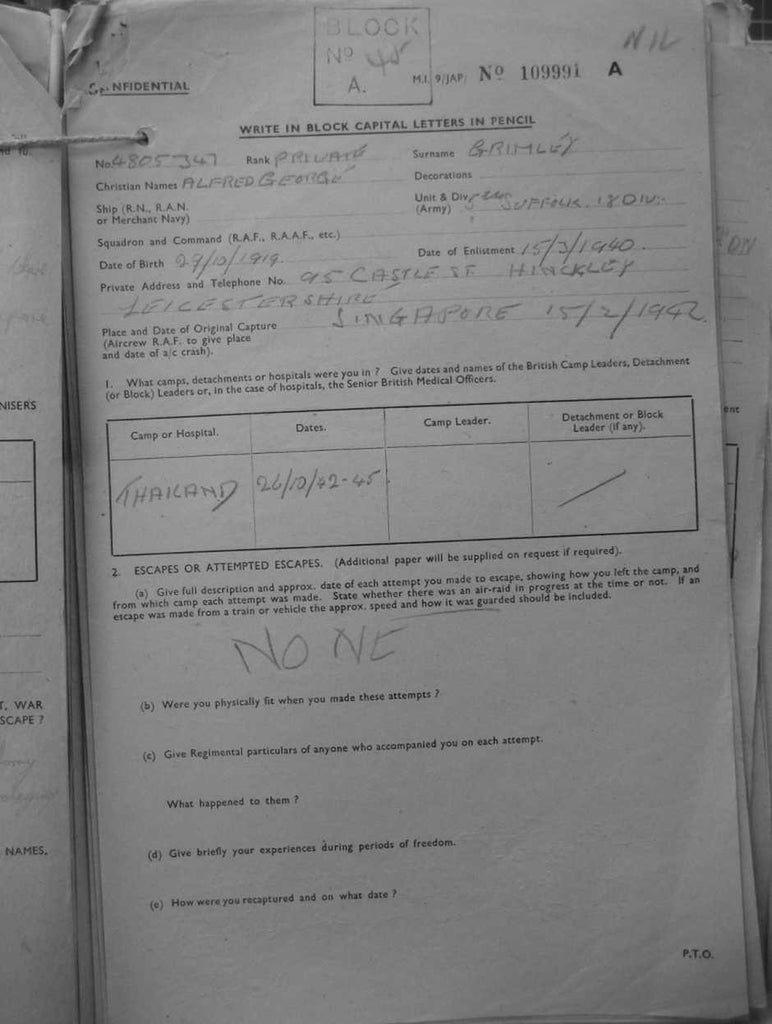 BLOCK
No 45
A.
NIL
CONFIDENTIAL
M.I. 9/JAP/ No 109991 A
WRITE IN BLOCK CAPITAL LETTERS IN PENCIL
No. 4805347 Rank PRIVATE Surname GRIMLEY
Christian Names ALFRED GEORGE Decorations
Ship (R.N., R.A.N. or Merchant Navy)
Unit & Div. (Army) SUFFOLK. 18 DIV.
Squadron and Command (R.A.F., R.A.A.F., etc.)
Date of Birth 29/10/1919. Date of Enlistment 15/3/1940.
Private Address and Telephone No. 95 CASTLE ST HINCKLEY
LEICESTERSHIRE
Place and Date of Original Capture SINGAPORE 15/2/1942.
(Aircrew R.A.F. to give place
and date of a/c crash).
1. What camps, detachments or hospitals were you in ? Give dates and names of the British Camp Leaders, Detachment
(or Block) Leaders or, in the case of hospitals, the Senior British Medical Officers.
Camp or Hospital. Dates. Camp Leader. Detachment or Block Leader (if any).
THAILAND 26/10/42-45
2. ESCAPES OR ATTEMPTED ESCAPES. (Additional paper will be supplied on request if required).
(a) Give full description and approx. date of each attempt you made to escape, showing how you left the camp, and
from which camp each attempt was made. State whether there was an air-raid in progress at the time or not. If an
escape was made from a train or vehicle the approx. speed and how it was guarded should be included.
NONE
(b) Were you physically fit when you made these attempts ?
(c) Give Regimental particulars of anyone who accompanied you on each attempt.
What happened to them ?
(d) Give briefly your experiences during periods of freedom.
(e) How were you recaptured and on what date ?
P.T.O.
NISERS
T. WAR
SCAPE ?
NAMES,
ent